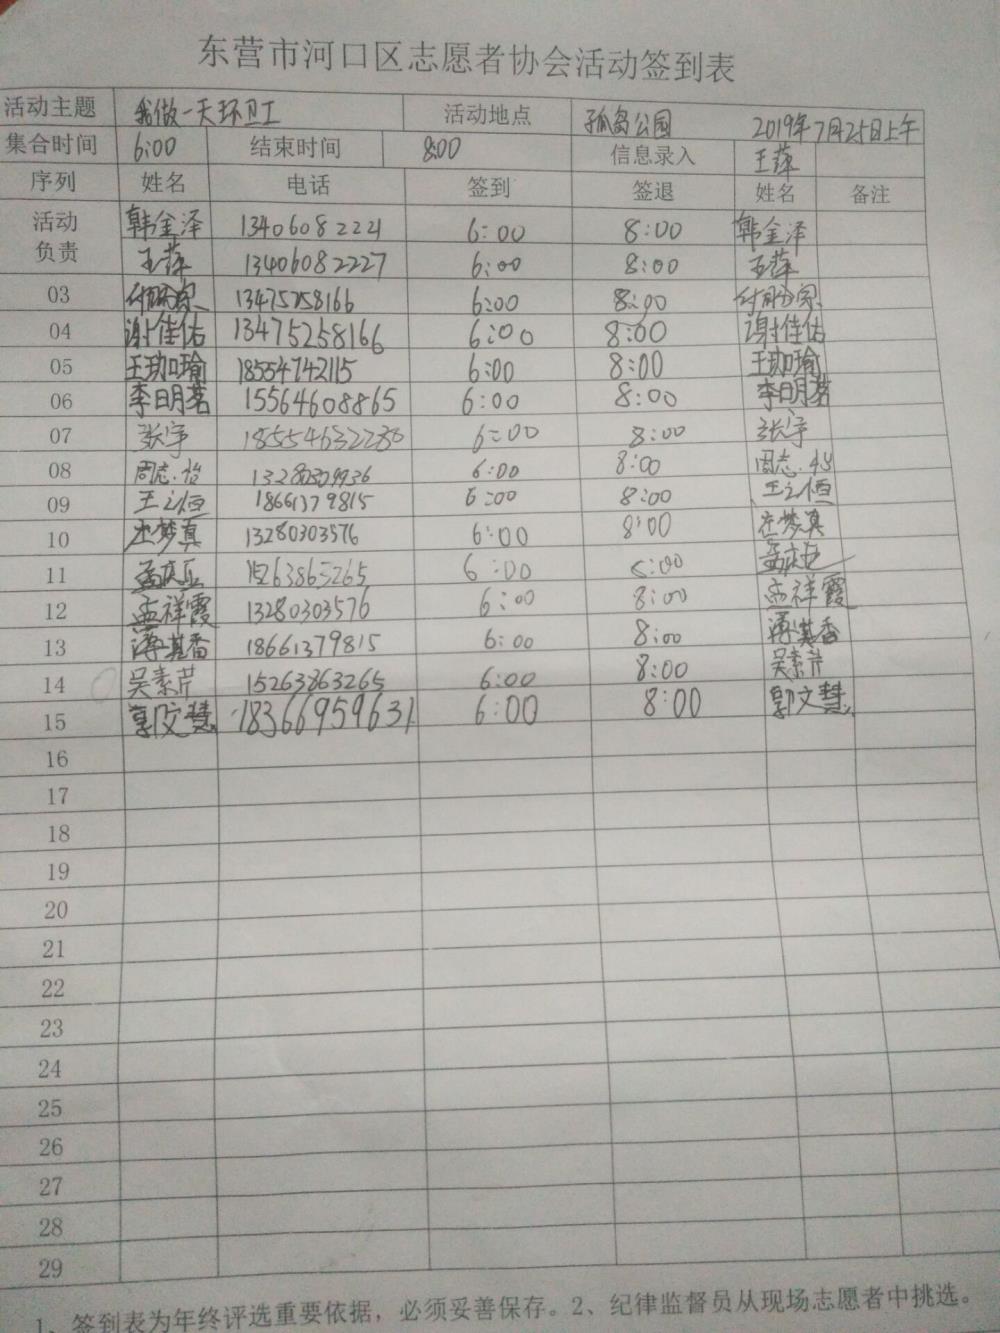 东营市河口区志愿者协会活动签到表
活动主题 我做一天环卫工 活动地点 孤岛公园 2019年7月25日上午
集合时间 6:00 结束时间 8:00 信息录入 王萍
序列 姓名 电话 签到 签退 姓名 备注
活动负责 韩金泽 13406082221 6:00 8:00 韩金泽
王萍 13406082227 6:00 8:00 王萍
03 13475258166 6:00 8:00
04 谢佳佑 13475258166 6:00 8:00 谢佳佑
05 王珈瑜 18554742115 6:00 8:00 王珈瑜
06 李明茗 15564608865 6:00 8:00 李明茗
07 张宇 18554632280 6:00 8:00 张宇
08 周志怡 6:00 8:00 周志怡
09 王之恒 18661379815 6:00 8:00 王之恒
10 庄梦真 13280303576 6:00 8:00 庄梦真
11 15263863265 6:00 8:00
12 孟祥霞 13280303576 6:00 8:00 孟祥霞
13 薄其香 18661379815 6:00 8:00 薄其香
14 吴素芹 15263863265 6:00 8:00 吴素芹
15 郭文慧 18366959631 6:00 8:00 郭文慧
16
17
18
19
20
21
22
23
24
25
26
27
28
29
1、签到表为年终评选重要依据，必须妥善保存。2、纪律监督员从现场志愿者中挑选。